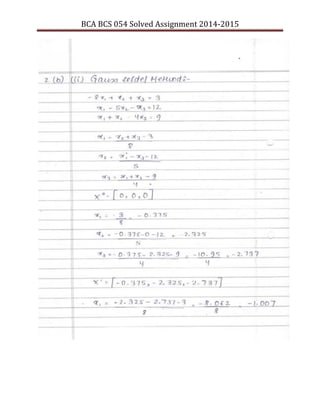 BCA BCS 054 Solved Assignment 2014-2015
2. (b) (ii) Gauss seidel Method:-
- 8x₁ + x₂ + x₃ = 3
x₁ - 5x₂ - x₃ = 12
x₁ + x₂ - 4x₃ = 9
x₁ = x₂ + x₃ - 3
8
x₂ = x₁ - x₃ - 12
5
x₃ = x₁ + x₂ - 9
4
x⁰ = [0, 0, 0]
x₁ = - 3 = - 0.375
8
x₂ = - 0.375 - 0 - 12 = - 2.325
5
x₃ = - 0.375 - 2.325 - 9 = - 10.95 = - 2.737
4 4
x' = [- 0.375, - 2.325, - 2.737]
x₁ = - 2.325 - 2.737 - 3 = - 8.062 = - 1.007
8 8